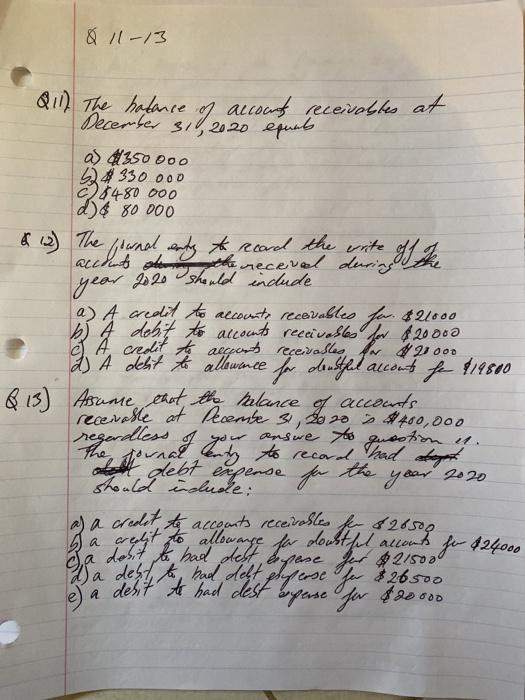 Q 11-13
Q11) The balance of accounts receivables at
December 31, 2020 equals
a) $350 000
b) $ 330 000
c) $480 000
d) $ 80 000
Q 12) The journal entry to record the write off of
accounts received during the
year 2020 should include
a) A credit to accounts receivables for $21000
b) A debit to accounts receivables for $20000
c) A credit to accounts receivables for $20000
d) A debit to allowance for doubtful accounts for $19800
Q 13) Assume that the balance of accounts
receivable at December 31, 2020 is $400,000
regardless of your answer to question 11.
The journal entry to record bad
debt expense for the year 2020
should include:
a) a credit to accounts receivables for $26500
b) a credit to allowance for doubtful accounts for $24000
c) a debit to bad debt expense for $21500
d) a debit to bad debt expense for $26500
e) a debit to bad debt expense for $20000